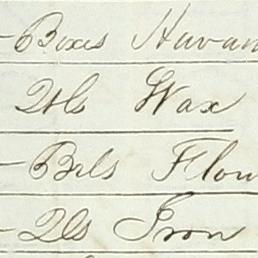 Boxes Havan
Qtls Wax
Bbls Flou
Qtls Iron